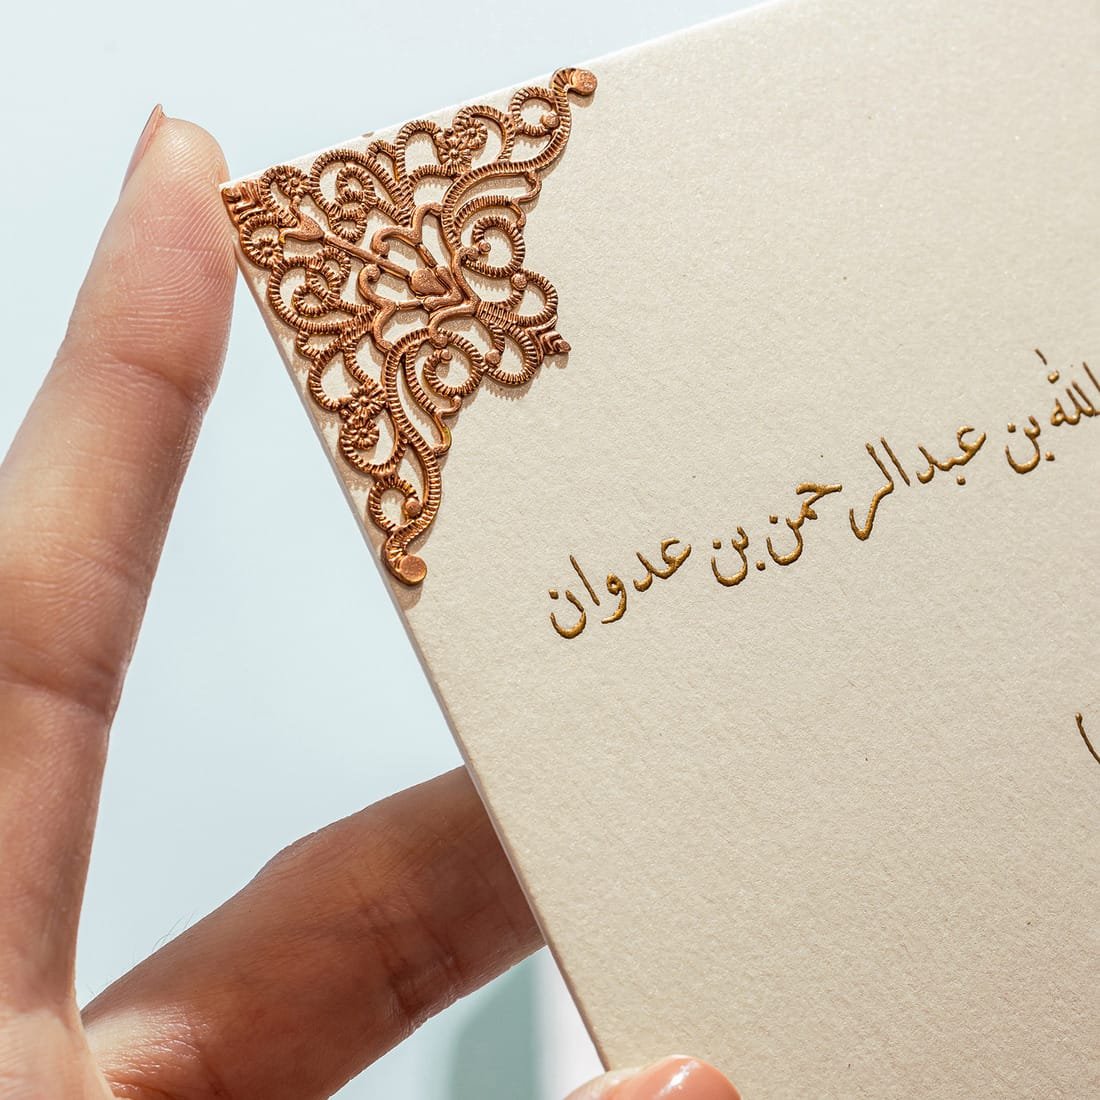 الله بن عبدالرحمن بن عدوان